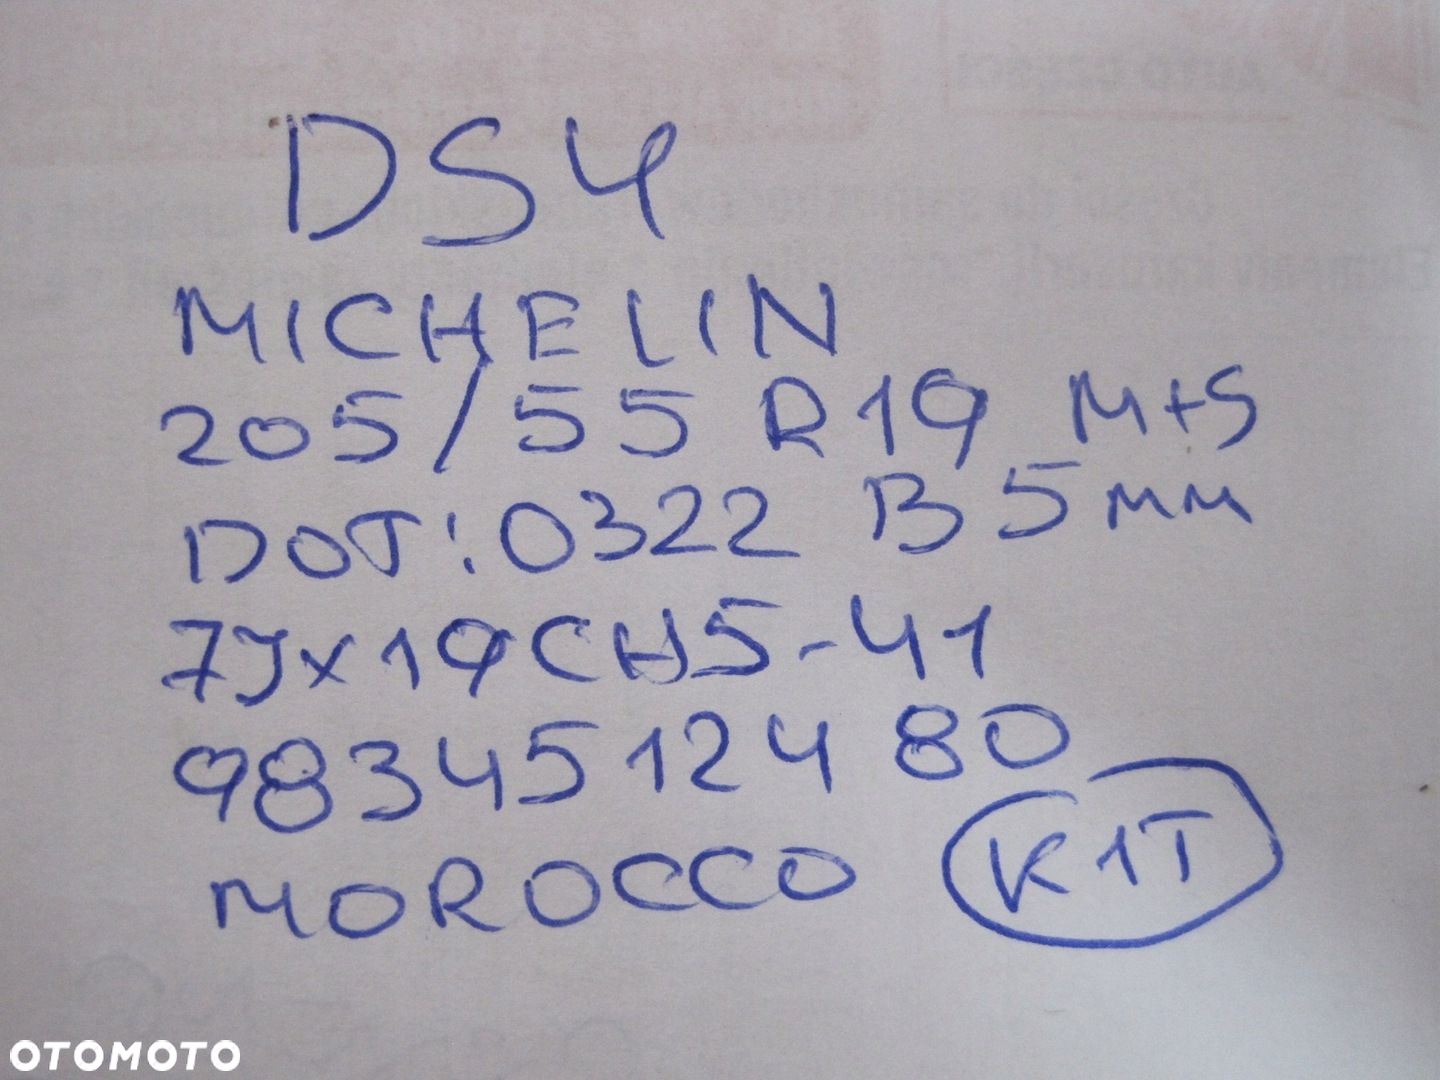 DS4
MICHELIN
205/55 R19 M+S
DOT: 0322 B 5mm
7Jx19CH5-41
9834512480
MOROCCO K1T
OTOMOTO